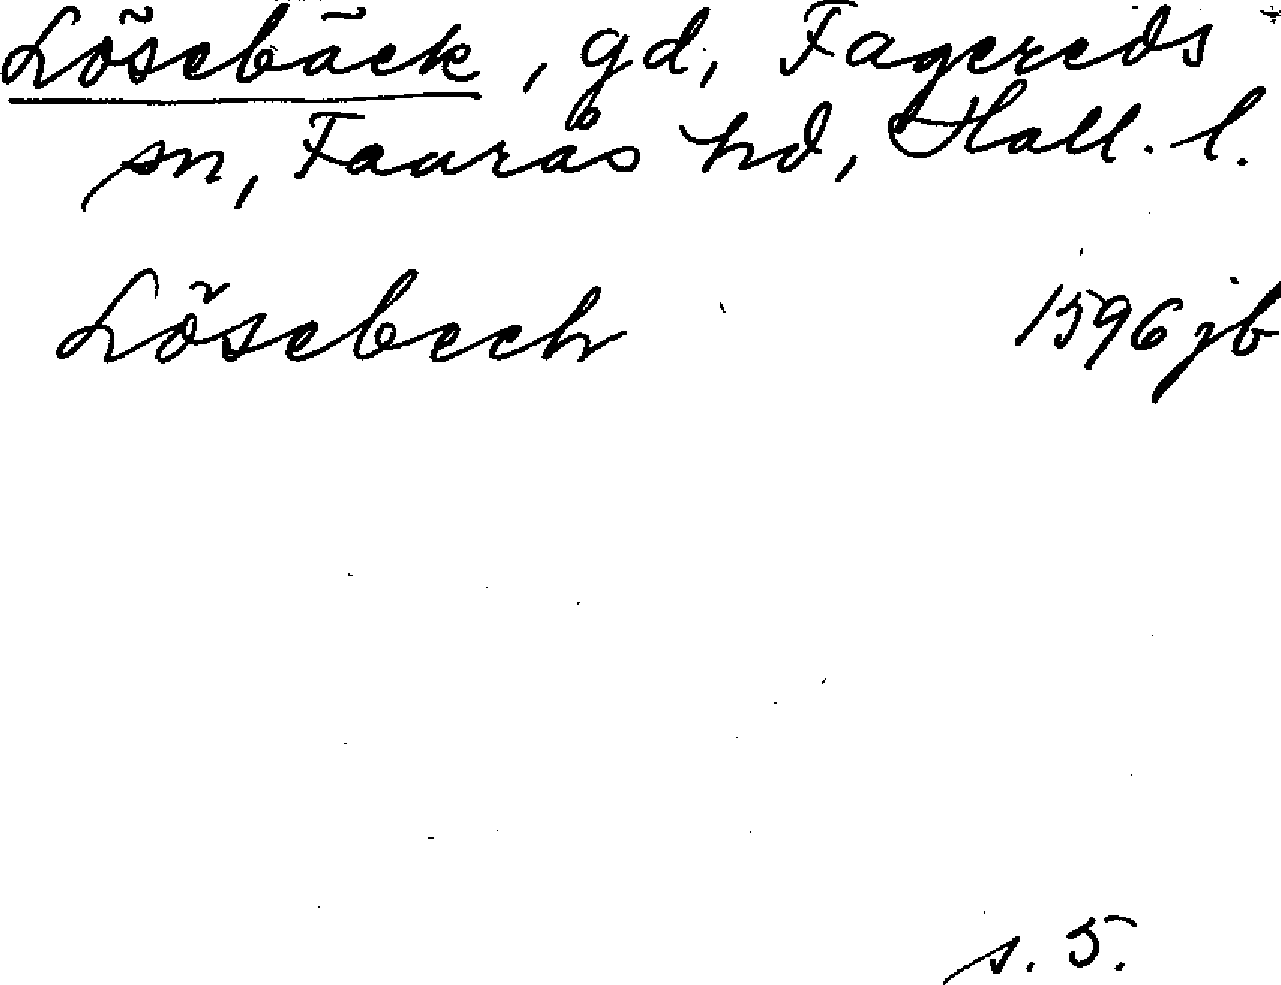 Lösebäck, gd, Fagereds
sn, Faurås hd, Hall. l.
Lösebech 1596 jb
s. 5.